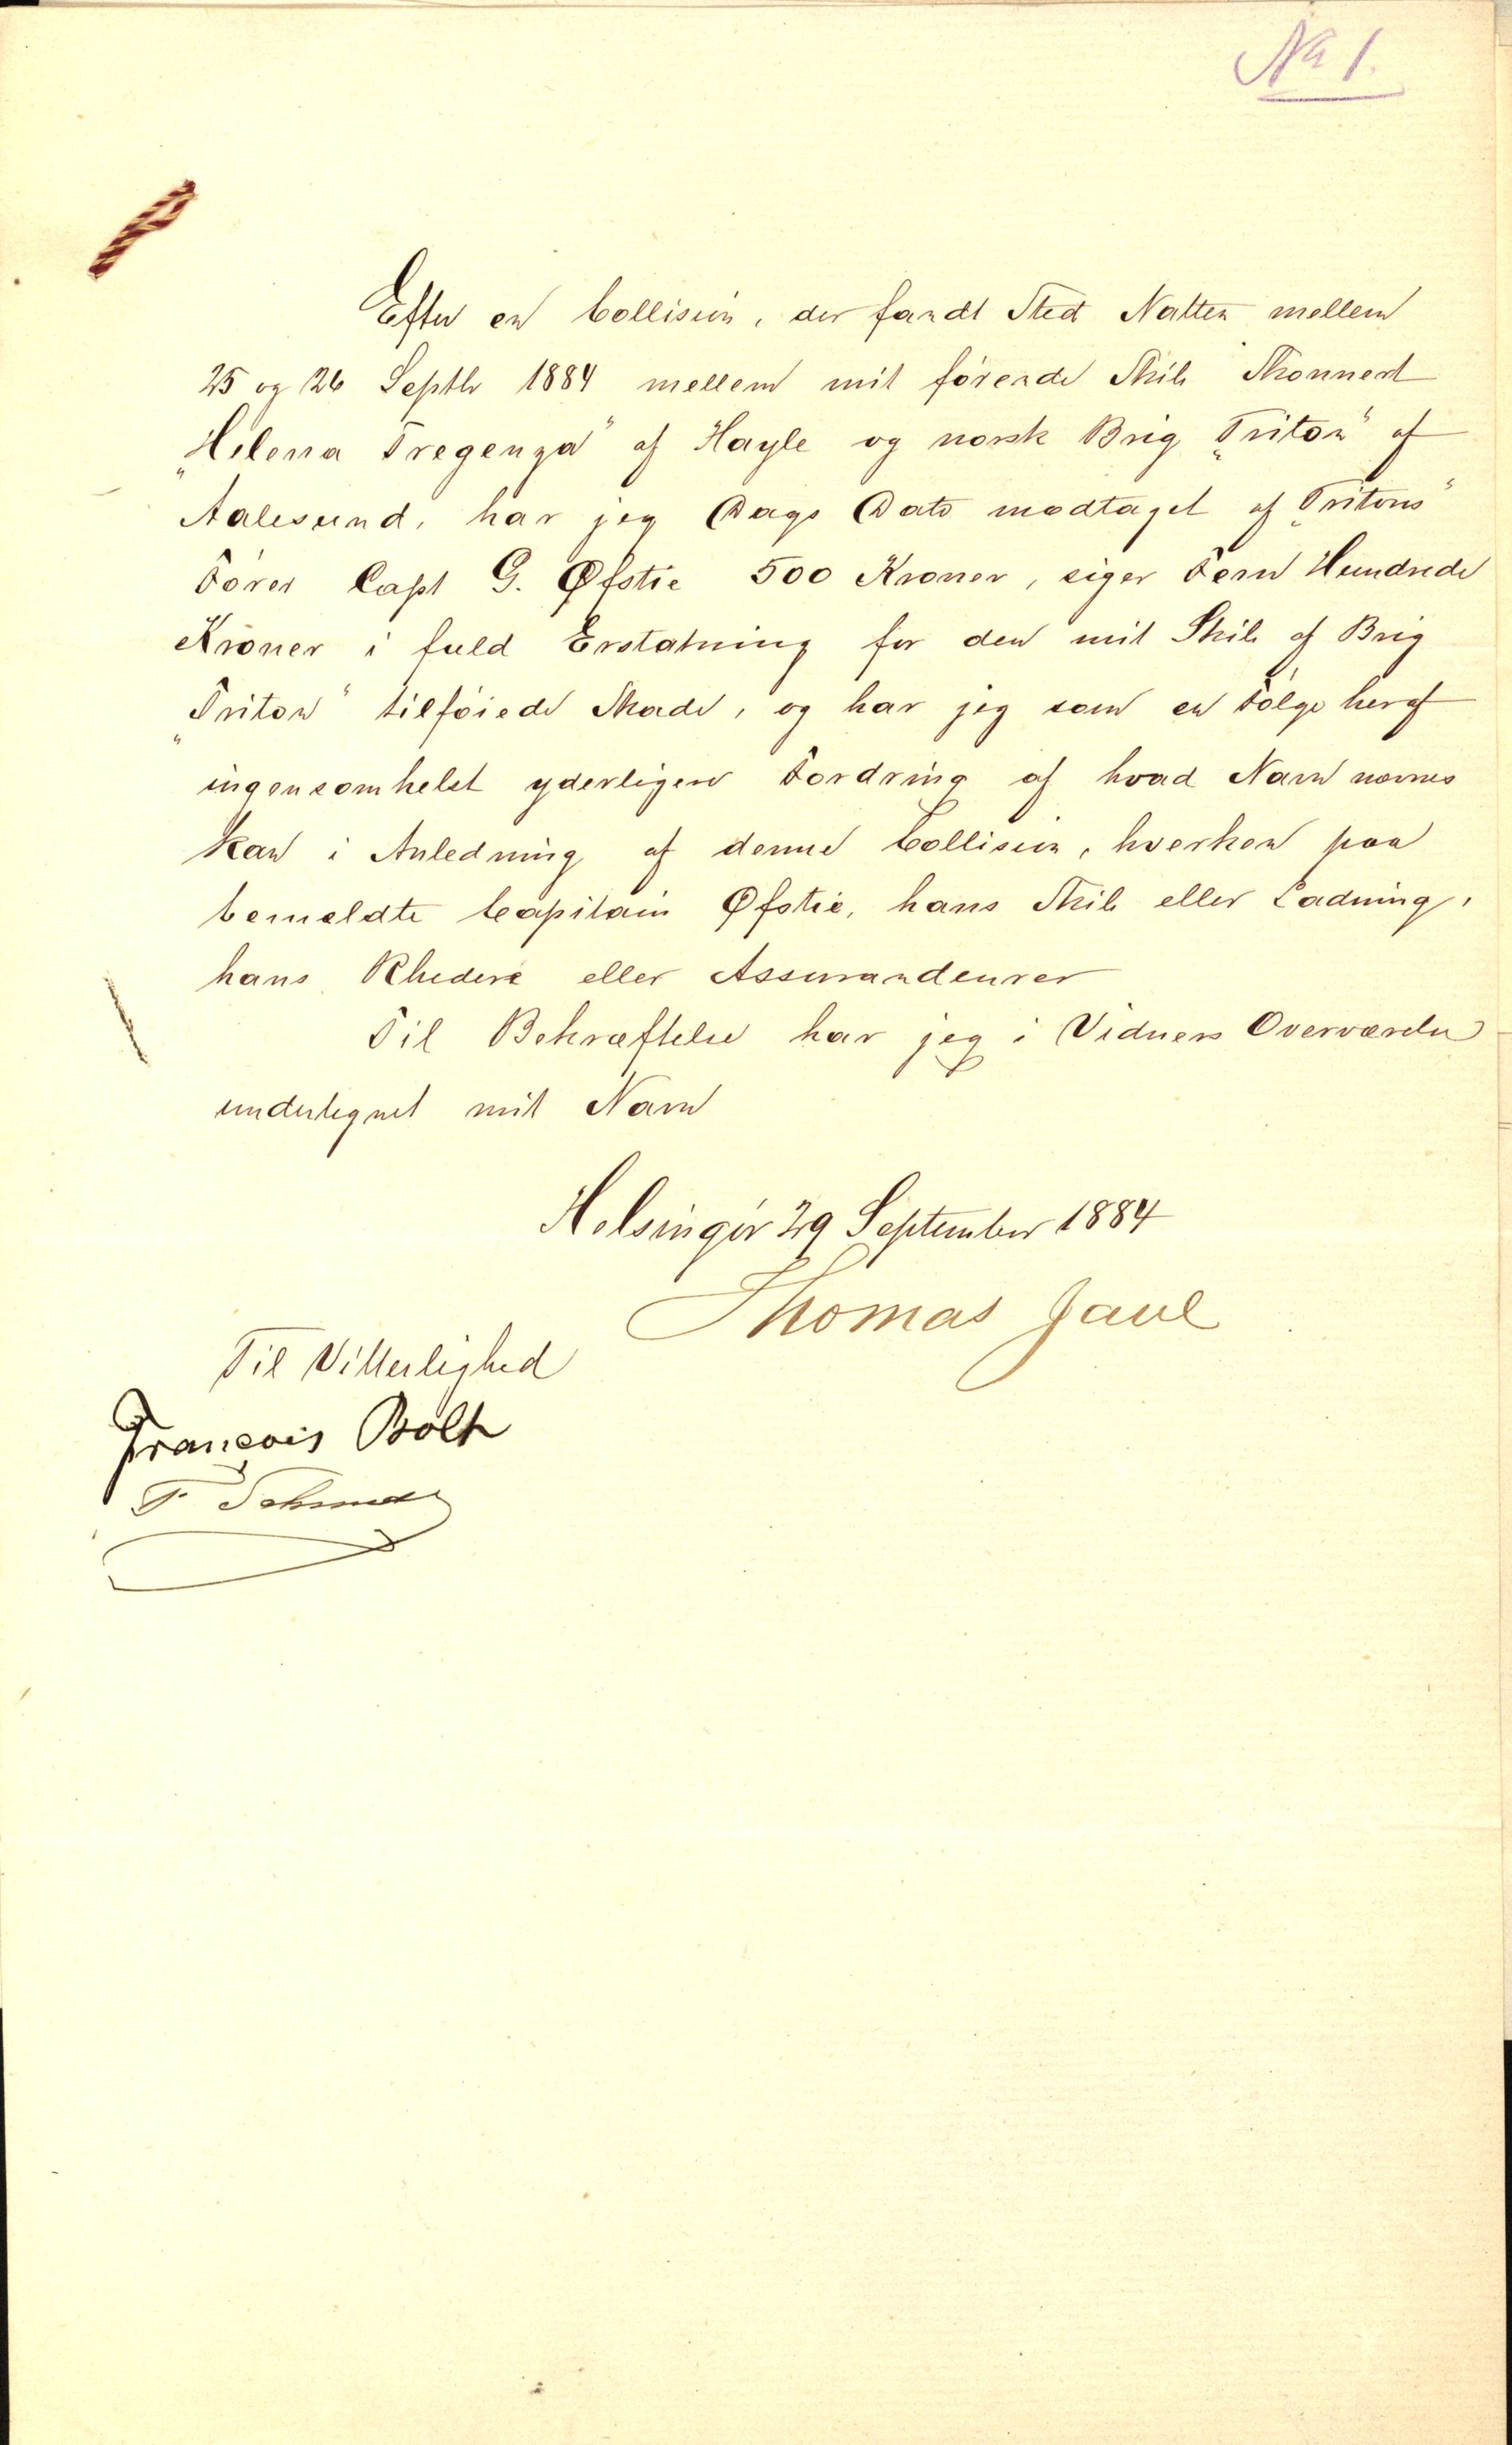 No 1.
Efter en Collision, der fandt Sted Natten mellem
25 og 26 Septbr 1884 mellem mit förende Skib Skonnert
„Helena Tregenza" af Hayle og norsk Brig „Triton" af
Aalesund, har jeg Dags Dato modtaget af „Tritons"
Förer Capt G. Øfstie 500 Kroner, siger Fem Hundrede
Kroner i fuld Erstatning for den mit Skib af Brig
„Triton" tilföiede Skade, og har jeg som en Fölge heraf
ingensomhelst yderligere Fordring af hvad Navn nævnes
kan i Anledning af denne Collision, hverken paa
bemeldte Capitain Øfstie, hans Skib eller Ladning,
hans Rhedere eller Assurandeurer
Til Bekræftelse har jeg i Vidners Overværelse
undertegnet mit Navn
Helsingör 29 September 1884
Thomas Jaul
Til Vitterlighed
François Bolt
F.